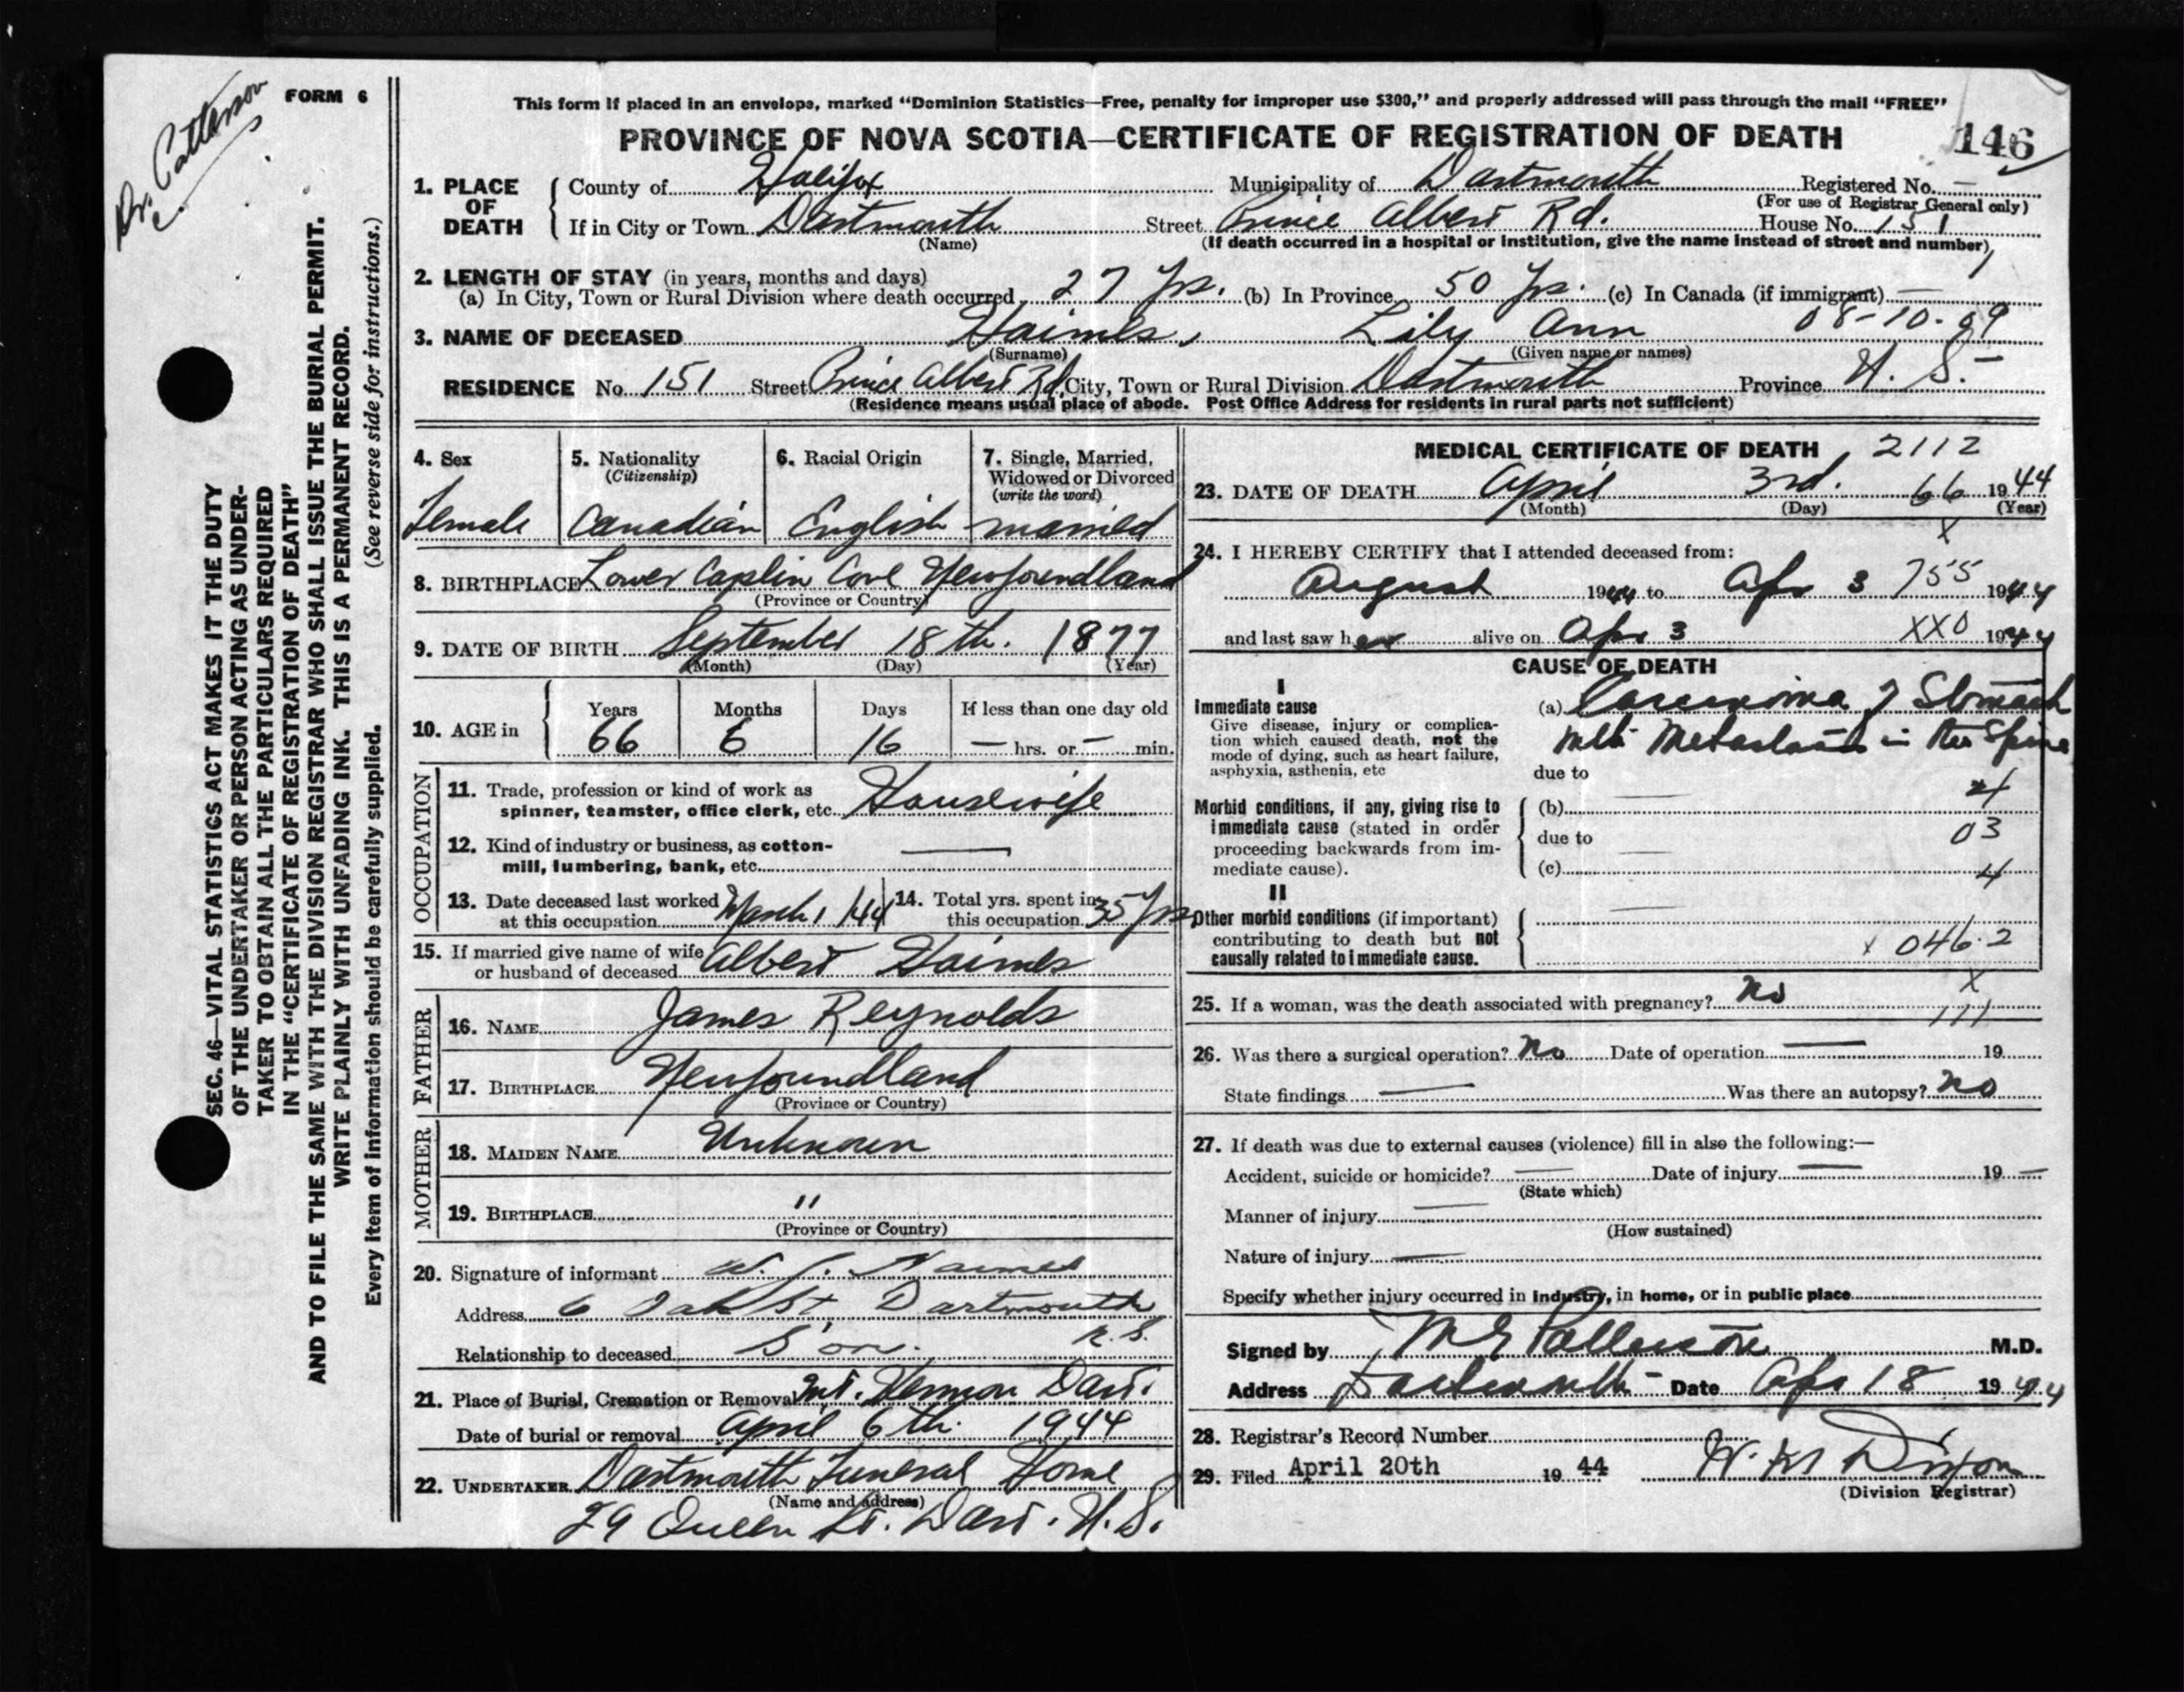 Dr. Patterson
FORM 6
SEC. 46—VITAL STATISTICS ACT MAKES IT THE DUTY
OF THE UNDERTAKER OR PERSON ACTING AS UNDER-
TAKER TO OBTAIN ALL THE PARTICULARS REQUIRED
IN THE "CERTIFICATE OF REGISTRATION OF DEATH"
AND TO FILE THE SAME WITH THE DIVISION REGISTRAR WHO SHALL ISSUE THE BURIAL PERMIT.
WRITE PLAINLY WITH UNFADING INK. THIS IS A PERMANENT RECORD.
Every item of information should be carefully supplied. (See reverse side for instructions.)
This form if placed in an envelope, marked "Dominion Statistics—Free, penalty for improper use $300," and properly addressed will pass through the mail "FREE"
PROVINCE OF NOVA SCOTIA—CERTIFICATE OF REGISTRATION OF DEATH 146
1. PLACE OF DEATH
County of Halifax Municipality of Dartmouth Registered No. —
(For use of Registrar General only)
If in City or Town Dartmouth Street Prince Albert Rd. House No. 151
(Name) (If death occurred in a hospital or institution, give the name instead of street and number)
2. LENGTH OF STAY (in years, months and days)
(a) In City, Town or Rural Division where death occurred 27 Yrs. (b) In Province 50 Yrs. (c) In Canada (if immigrant) —
3. NAME OF DECEASED Haimes, Lily Ann 08-10-09
(Surname) (Given name or names)
RESIDENCE No. 151 Street Prince Albert Rd. City, Town or Rural Division Dartmouth Province N. S.
(Residence means usual place of abode. Post Office Address for residents in rural parts not sufficient)
4. Sex
Female
5. Nationality
(Citizenship)
Canadian
6. Racial Origin
English
7. Single, Married,
Widowed or Divorced
(write the word)
married
8. BIRTHPLACE Lower Caplin Cove Newfoundland
(Province or Country)
9. DATE OF BIRTH September 18th. 1877
(Month) (Day) (Year)
10. AGE in
Years Months Days If less than one day old
66 6 16 — hrs. or — min.
OCCUPATION
11. Trade, profession or kind of work as
spinner, teamster, office clerk, etc. Housewife
12. Kind of industry or business, as cotton-
mill, lumbering, bank, etc. —
13. Date deceased last worked
at this occupation March 1/44
14. Total yrs. spent in
this occupation 35 Yrs
15. If married give name of wife
or husband of deceased Albert Haimes
FATHER
16. NAME James Reynolds
17. BIRTHPLACE Newfoundland
(Province or Country)
MOTHER
18. MAIDEN NAME Unknown
19. BIRTHPLACE "
(Province or Country)
20. Signature of informant W. J. Haimes
Address 6 Oak St Dartmouth
N.S.
Relationship to deceased Son.
21. Place of Burial, Cremation or Removal Mt. Hermon Dart.
Date of burial or removal April 6th. 1944
22. UNDERTAKER Dartmouth Funeral Home
(Name and address)
29 Queen St. Dart. N.S.
MEDICAL CERTIFICATE OF DEATH 2112
23. DATE OF DEATH April 3rd. 66 1944
(Month) (Day) (Year)
x
24. I HEREBY CERTIFY that I attended deceased from:
August 1944 to Apr 3 755 1944
and last saw her alive on Apr 3 XX0 1944
CAUSE OF DEATH
I
Immediate cause
Give disease, injury or complica-
tion which caused death, not the
mode of dying, such as heart failure,
asphyxia, asthenia, etc
(a) Carcinoma of Stomach
with Metastasis in the Spine
due to
4
Morbid conditions, if any, giving rise to
immediate cause (stated in order
proceeding backwards from im-
mediate cause).
(b) —
due to — 03
(c) — 4
II
Other morbid conditions (if important)
contributing to death but not
causally related to immediate cause.
x 046.2
25. If a woman, was the death associated with pregnancy? No
x
111
26. Was there a surgical operation? No Date of operation — 19
State findings — Was there an autopsy? No
27. If death was due to external causes (violence) fill in also the following:—
Accident, suicide or homicide? — Date of injury — 19 —
(State which)
Manner of injury —
(How sustained)
Nature of injury —
Specify whether injury occurred in industry, in home, or in public place
Signed by M G Patterson M.D.
Address Dartmouth - Date Apr 18 1944
28. Registrar's Record Number
29. Filed April 20th 19 44 Dixon
(Division Registrar)